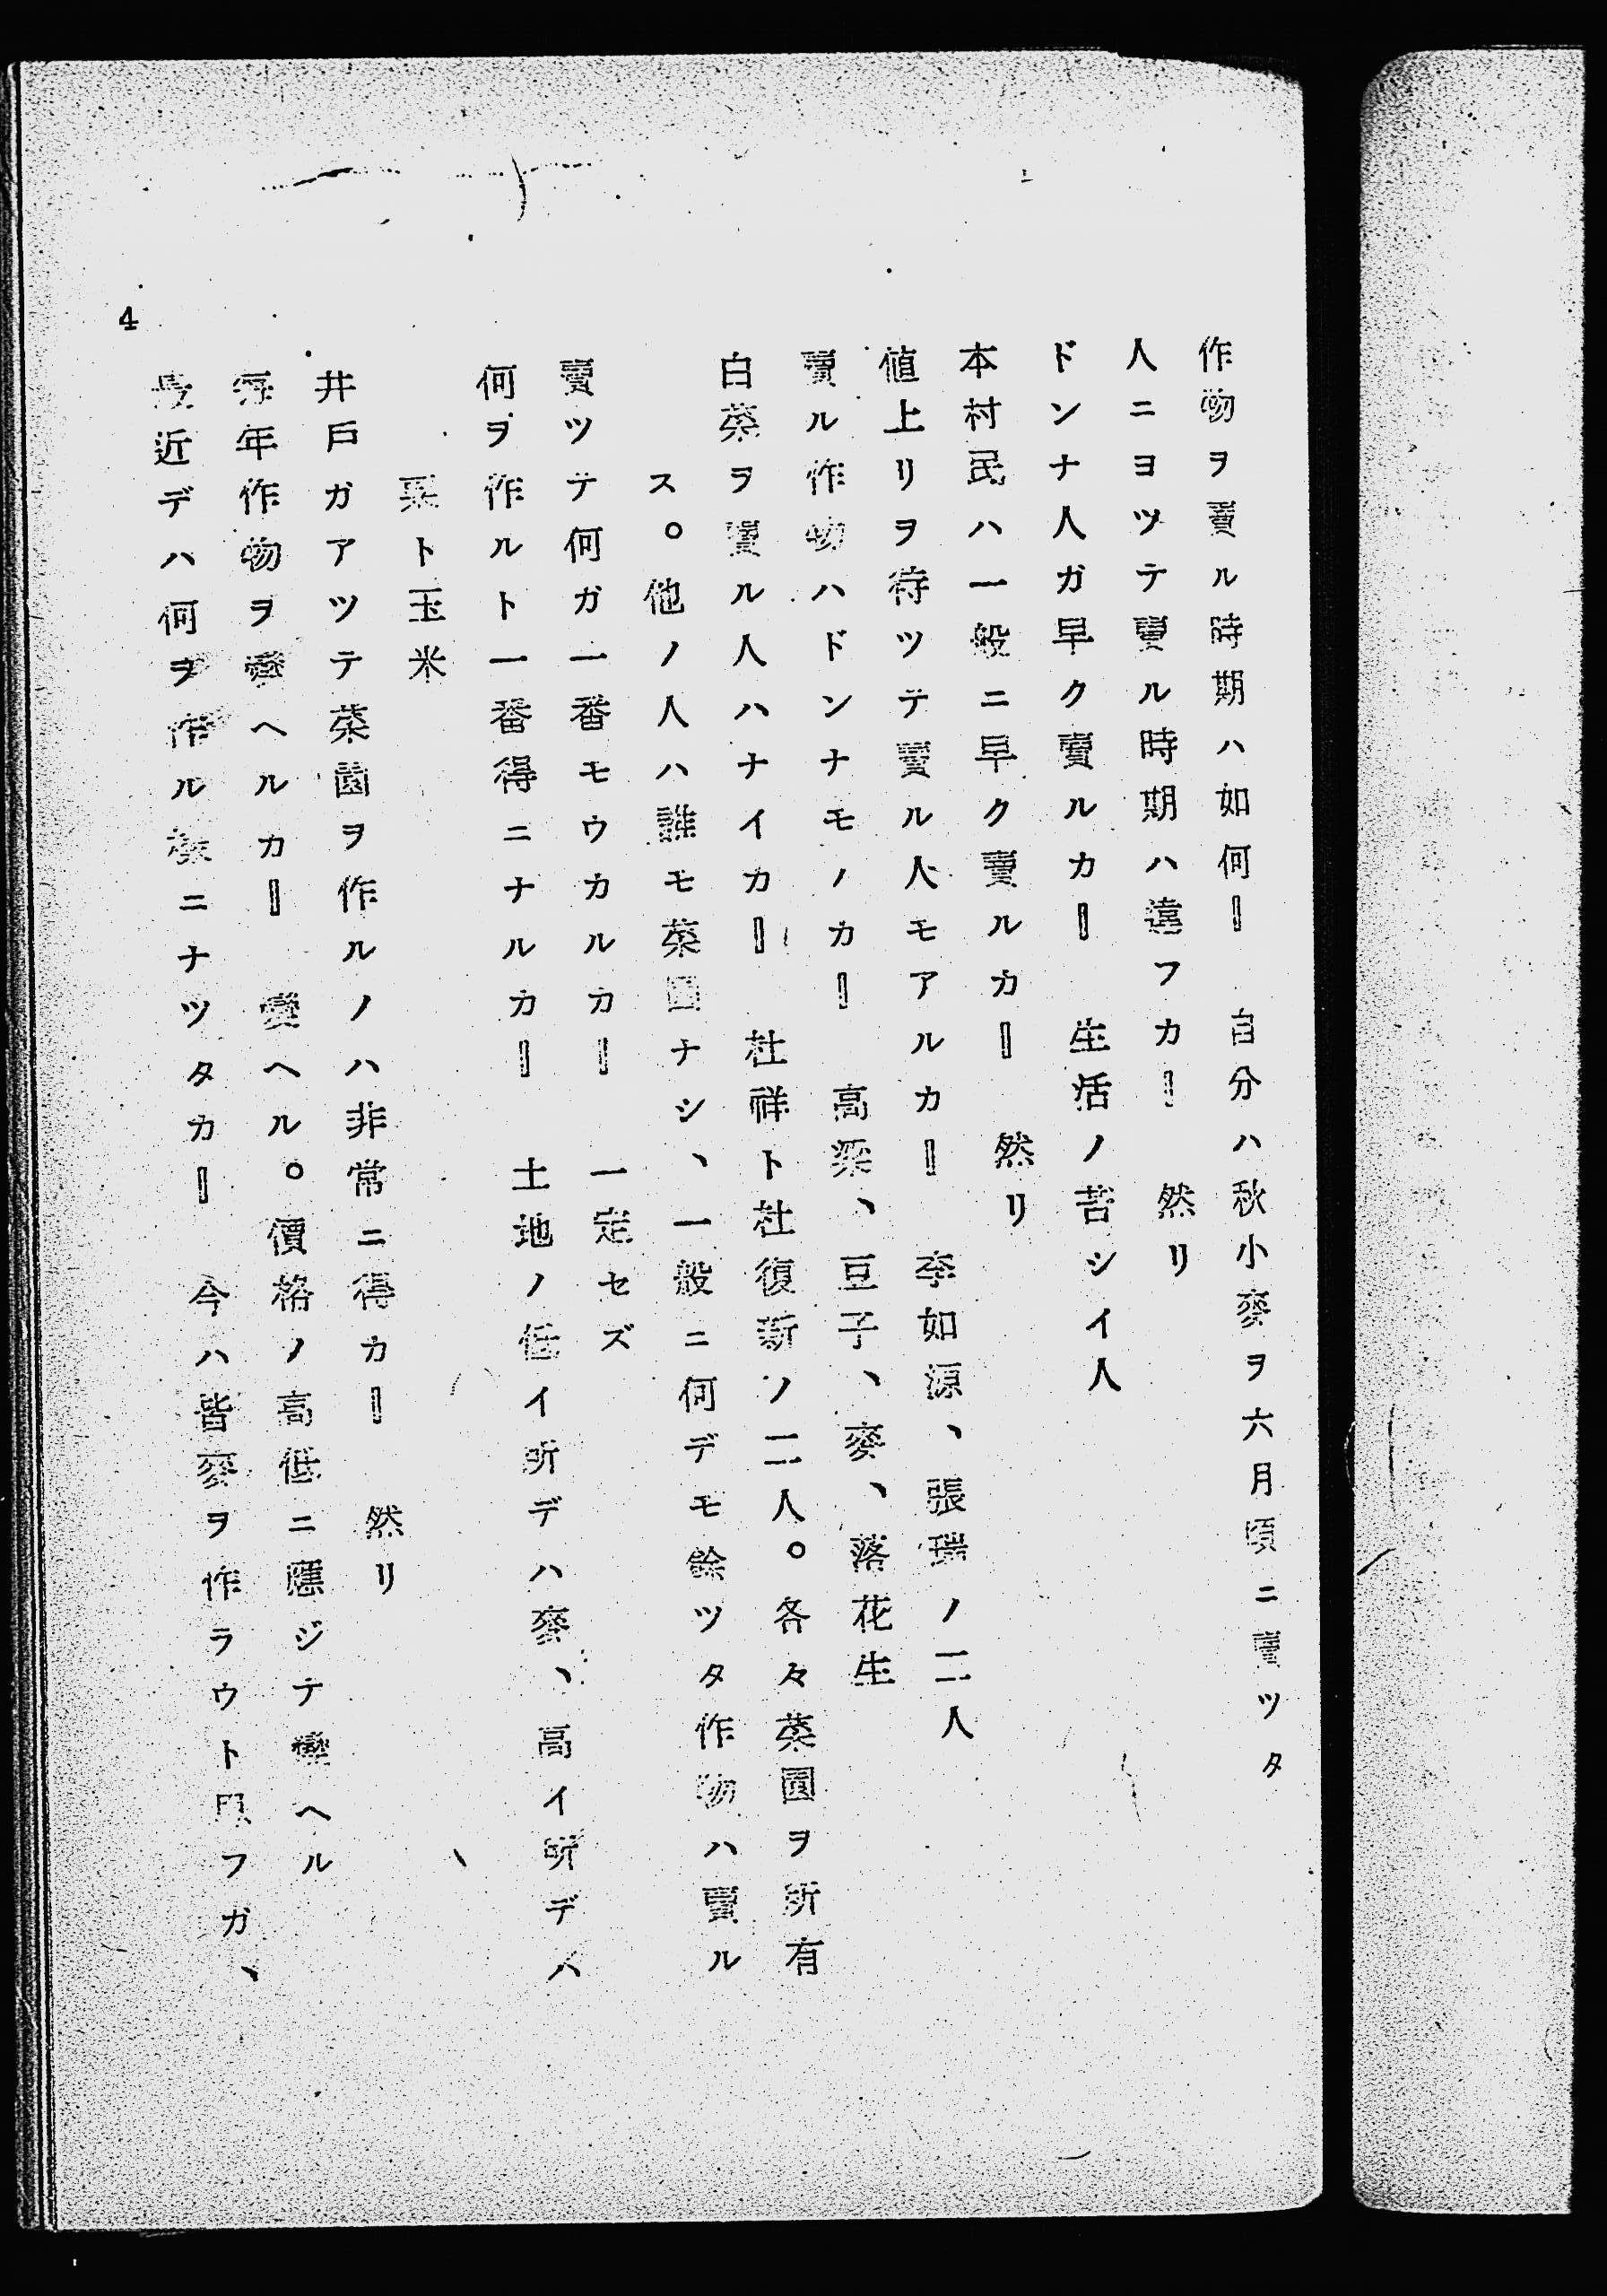 作物ヲ賣ル時期ハ如何ー　自分ハ秋小麥ヲ六月頃ニ賣ツタ
人ニヨツテ賣ル時期ハ違フカー　然リ
ドンナ人ガ早ク賣ルカー　生活ノ苦シイ人
本村民ハ一般ニ早ク賣ルカー　然リ
値上リヲ待ツテ賣ル人モアルカー　李如源、張瑞ノ二人
賣ル作物ハドンナモノカー　高粱、豆子、麥、落花生
白菜ヲ賣ル人ハナイカー　杜祥ト杜復新ノ二人。各々菜園ヲ所有
ス。他ノ人ハ誰モ菜園ナシ、一般ニ何デモ餘ツタ作物ハ賣ル
賣ツテ何ガ一番モウカルカー　一定セズ
何ヲ作ルト一番得ニナルカー　土地ノ低イ所デハ麥、高イ所デハ
粟ト玉米
井戸ガアツテ菜園ヲ作ルノハ非常ニ得カー　然リ
毎年作物ヲ變ヘルカー　變ヘル。價格ノ高低ニ應ジテ變ヘル
最近デハ何ヲ作ル樣ニナツタカー　今ハ皆麥ヲ作ラウト思フガ、
4